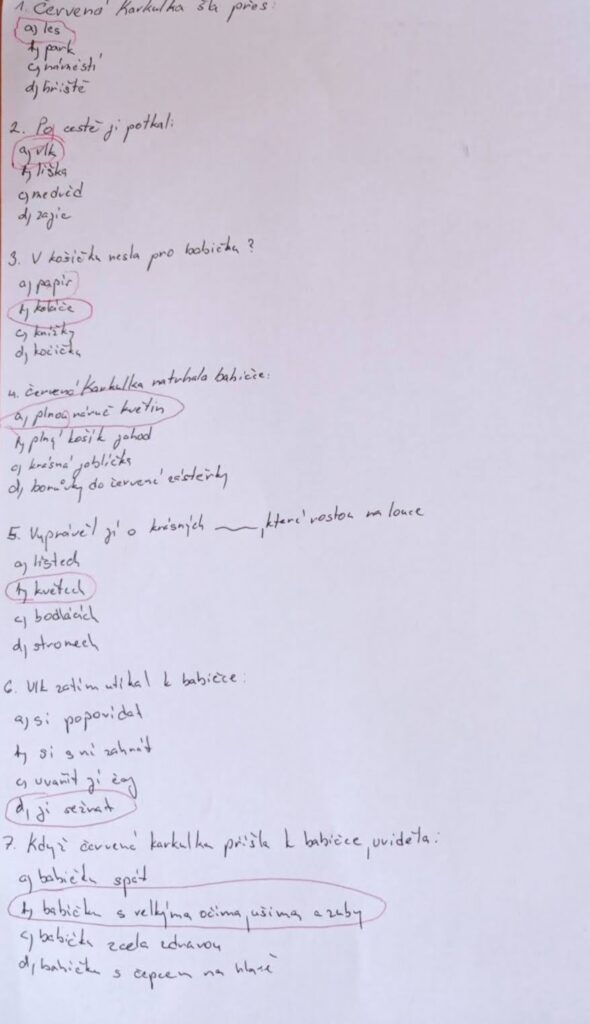 1. Červená Karkulka šla přes:
a) les
b) park
c) náměstí
d) hřiště
2. Po cestě ji potkal:
a) vlk
b) liška
c) medvěd
d) zajíc
3. V košíčku nesla pro babičku?
a) papír
b) koláče
c) knížky
d) kočičku
4. červená Karkulka natrhala babičce:
a) plnou náruč květin
b) plný košík jahod
c) krásná jablíčka
d) borůvky do červené zástěrky
5. Vyprávěl jí o krásných ____, které rostou na louce
a) listech
b) květech
c) bodlácích
d) stromech
6. Vlk zatím utíkal k babičce:
a) si popovídat
b) si s ní zahrát
c) uvařit jí čaj
d) ji sežrat
7. Když červená karkulka přišla k babičce, uviděla:
a) babičku spát
b) babičku s velkýma očima, ušima a zuby
c) babičku zcela zdravou
d) babičku s čepcem na hlavě